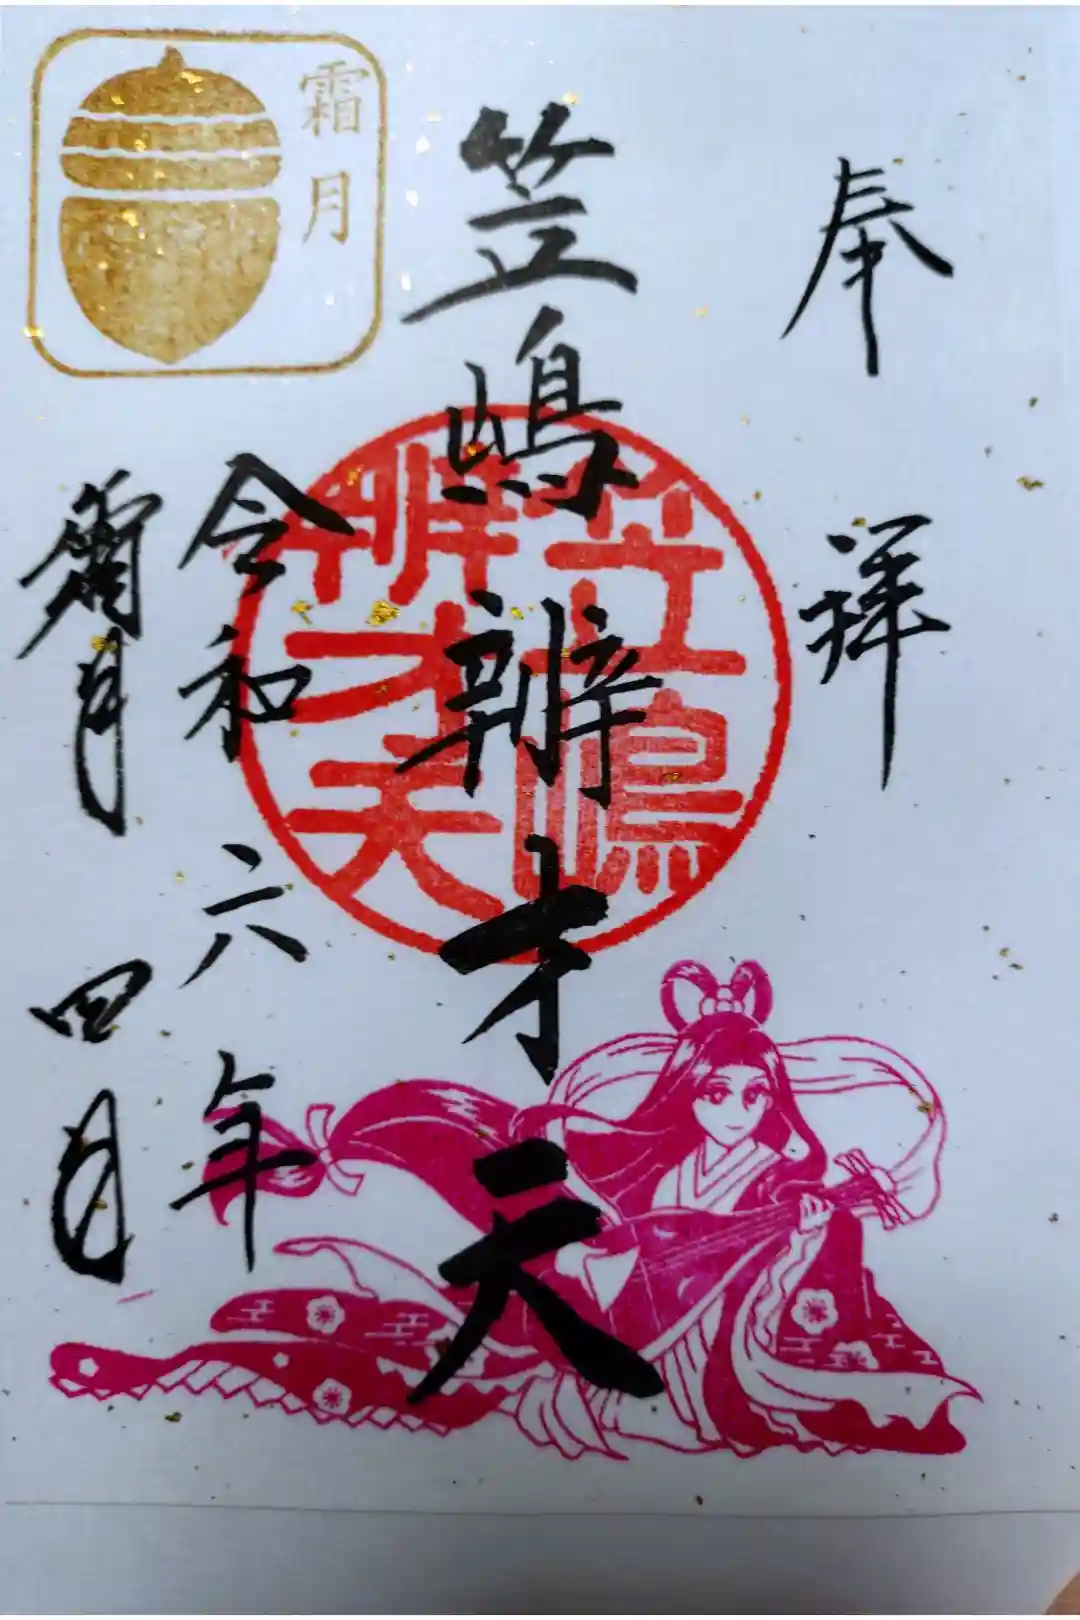 奉拝
笠嶋辨才天
令和六年
霜月四日
霜月
笠嶋
辨才天